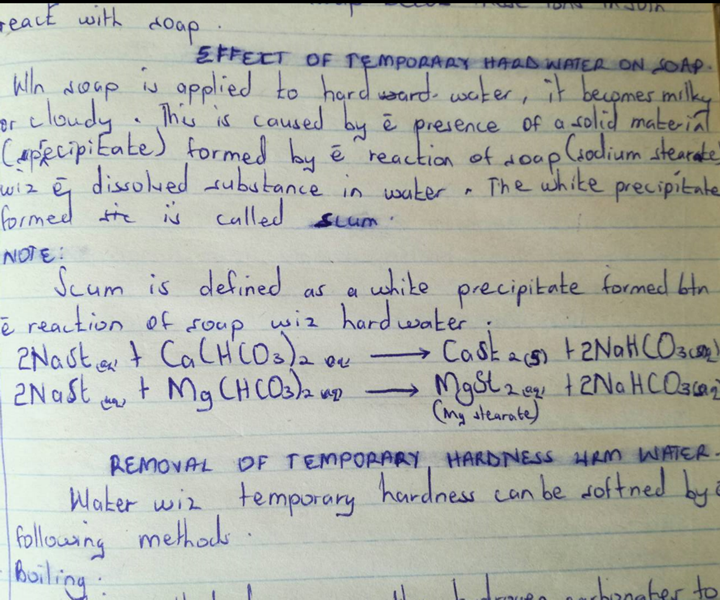 react with soap.
EFFECT OF TEMPORARY HARD WATER ON SOAP.
Wln soap is applied to hard water, it becomes milky
or cloudy. This is caused by ē presence of a solid material
(precipitate) formed by ē reaction of soap (sodium stearate)
wiz ē dissolved substance in water. The white precipitate
formed is called scum.
NOTE:
Scum is defined as a white precipitate formed btn
ē reaction of soap wiz hard water.
2NaSt(aq) + Ca(HCO3)2(aq) → CaSt2(s) + 2NaHCO3(aq)
2NaSt(aq) + Mg(HCO3)2(aq) → MgSt2(aq) + 2NaHCO3(aq)
(mg stearate)
REMOVAL OF TEMPORARY HARDNESS FRM WATER.
Water wiz temporary hardness can be softned by ē
following methods.
Boiling: